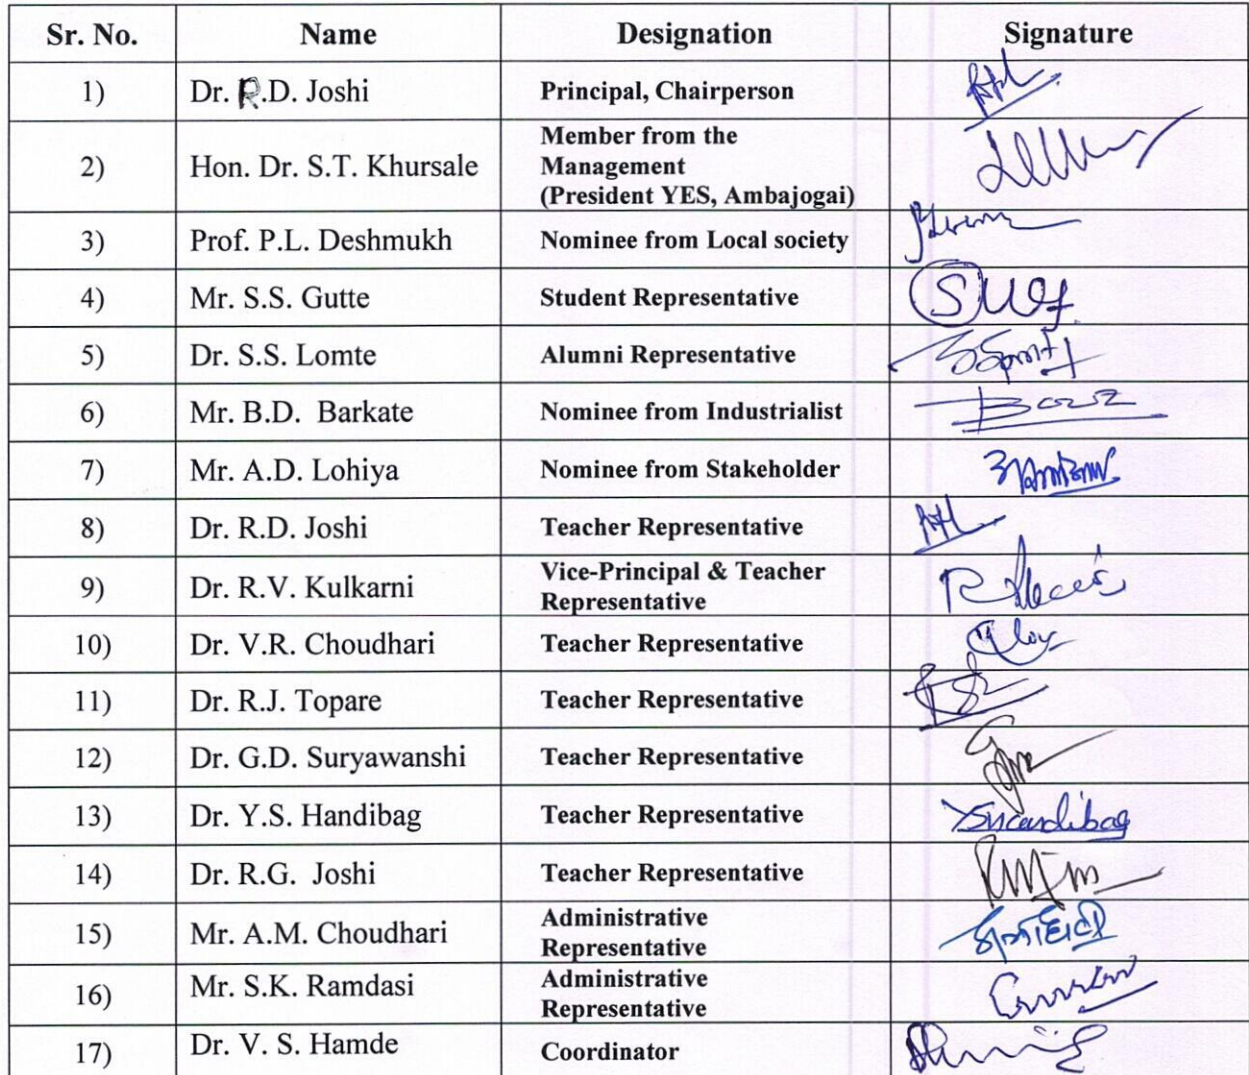 Sr. No. Name Designation Signature
1) Dr. R.D. Joshi Principal, Chairperson
2) Hon. Dr. S.T. Khursale Member from the
Management
(President YES, Ambajogai)
3) Prof. P.L. Deshmukh Nominee from Local society
4) Mr. S.S. Gutte Student Representative
5) Dr. S.S. Lomte Alumni Representative
6) Mr. B.D. Barkate Nominee from Industrialist
7) Mr. A.D. Lohiya Nominee from Stakeholder
8) Dr. R.D. Joshi Teacher Representative
9) Dr. R.V. Kulkarni Vice-Principal & Teacher
Representative
10) Dr. V.R. Choudhari Teacher Representative
11) Dr. R.J. Topare Teacher Representative
12) Dr. G.D. Suryawanshi Teacher Representative
13) Dr. Y.S. Handibag Teacher Representative
14) Dr. R.G. Joshi Teacher Representative
15) Mr. A.M. Choudhari Administrative
Representative
16) Mr. S.K. Ramdasi Administrative
Representative
17) Dr. V. S. Hamde Coordinator